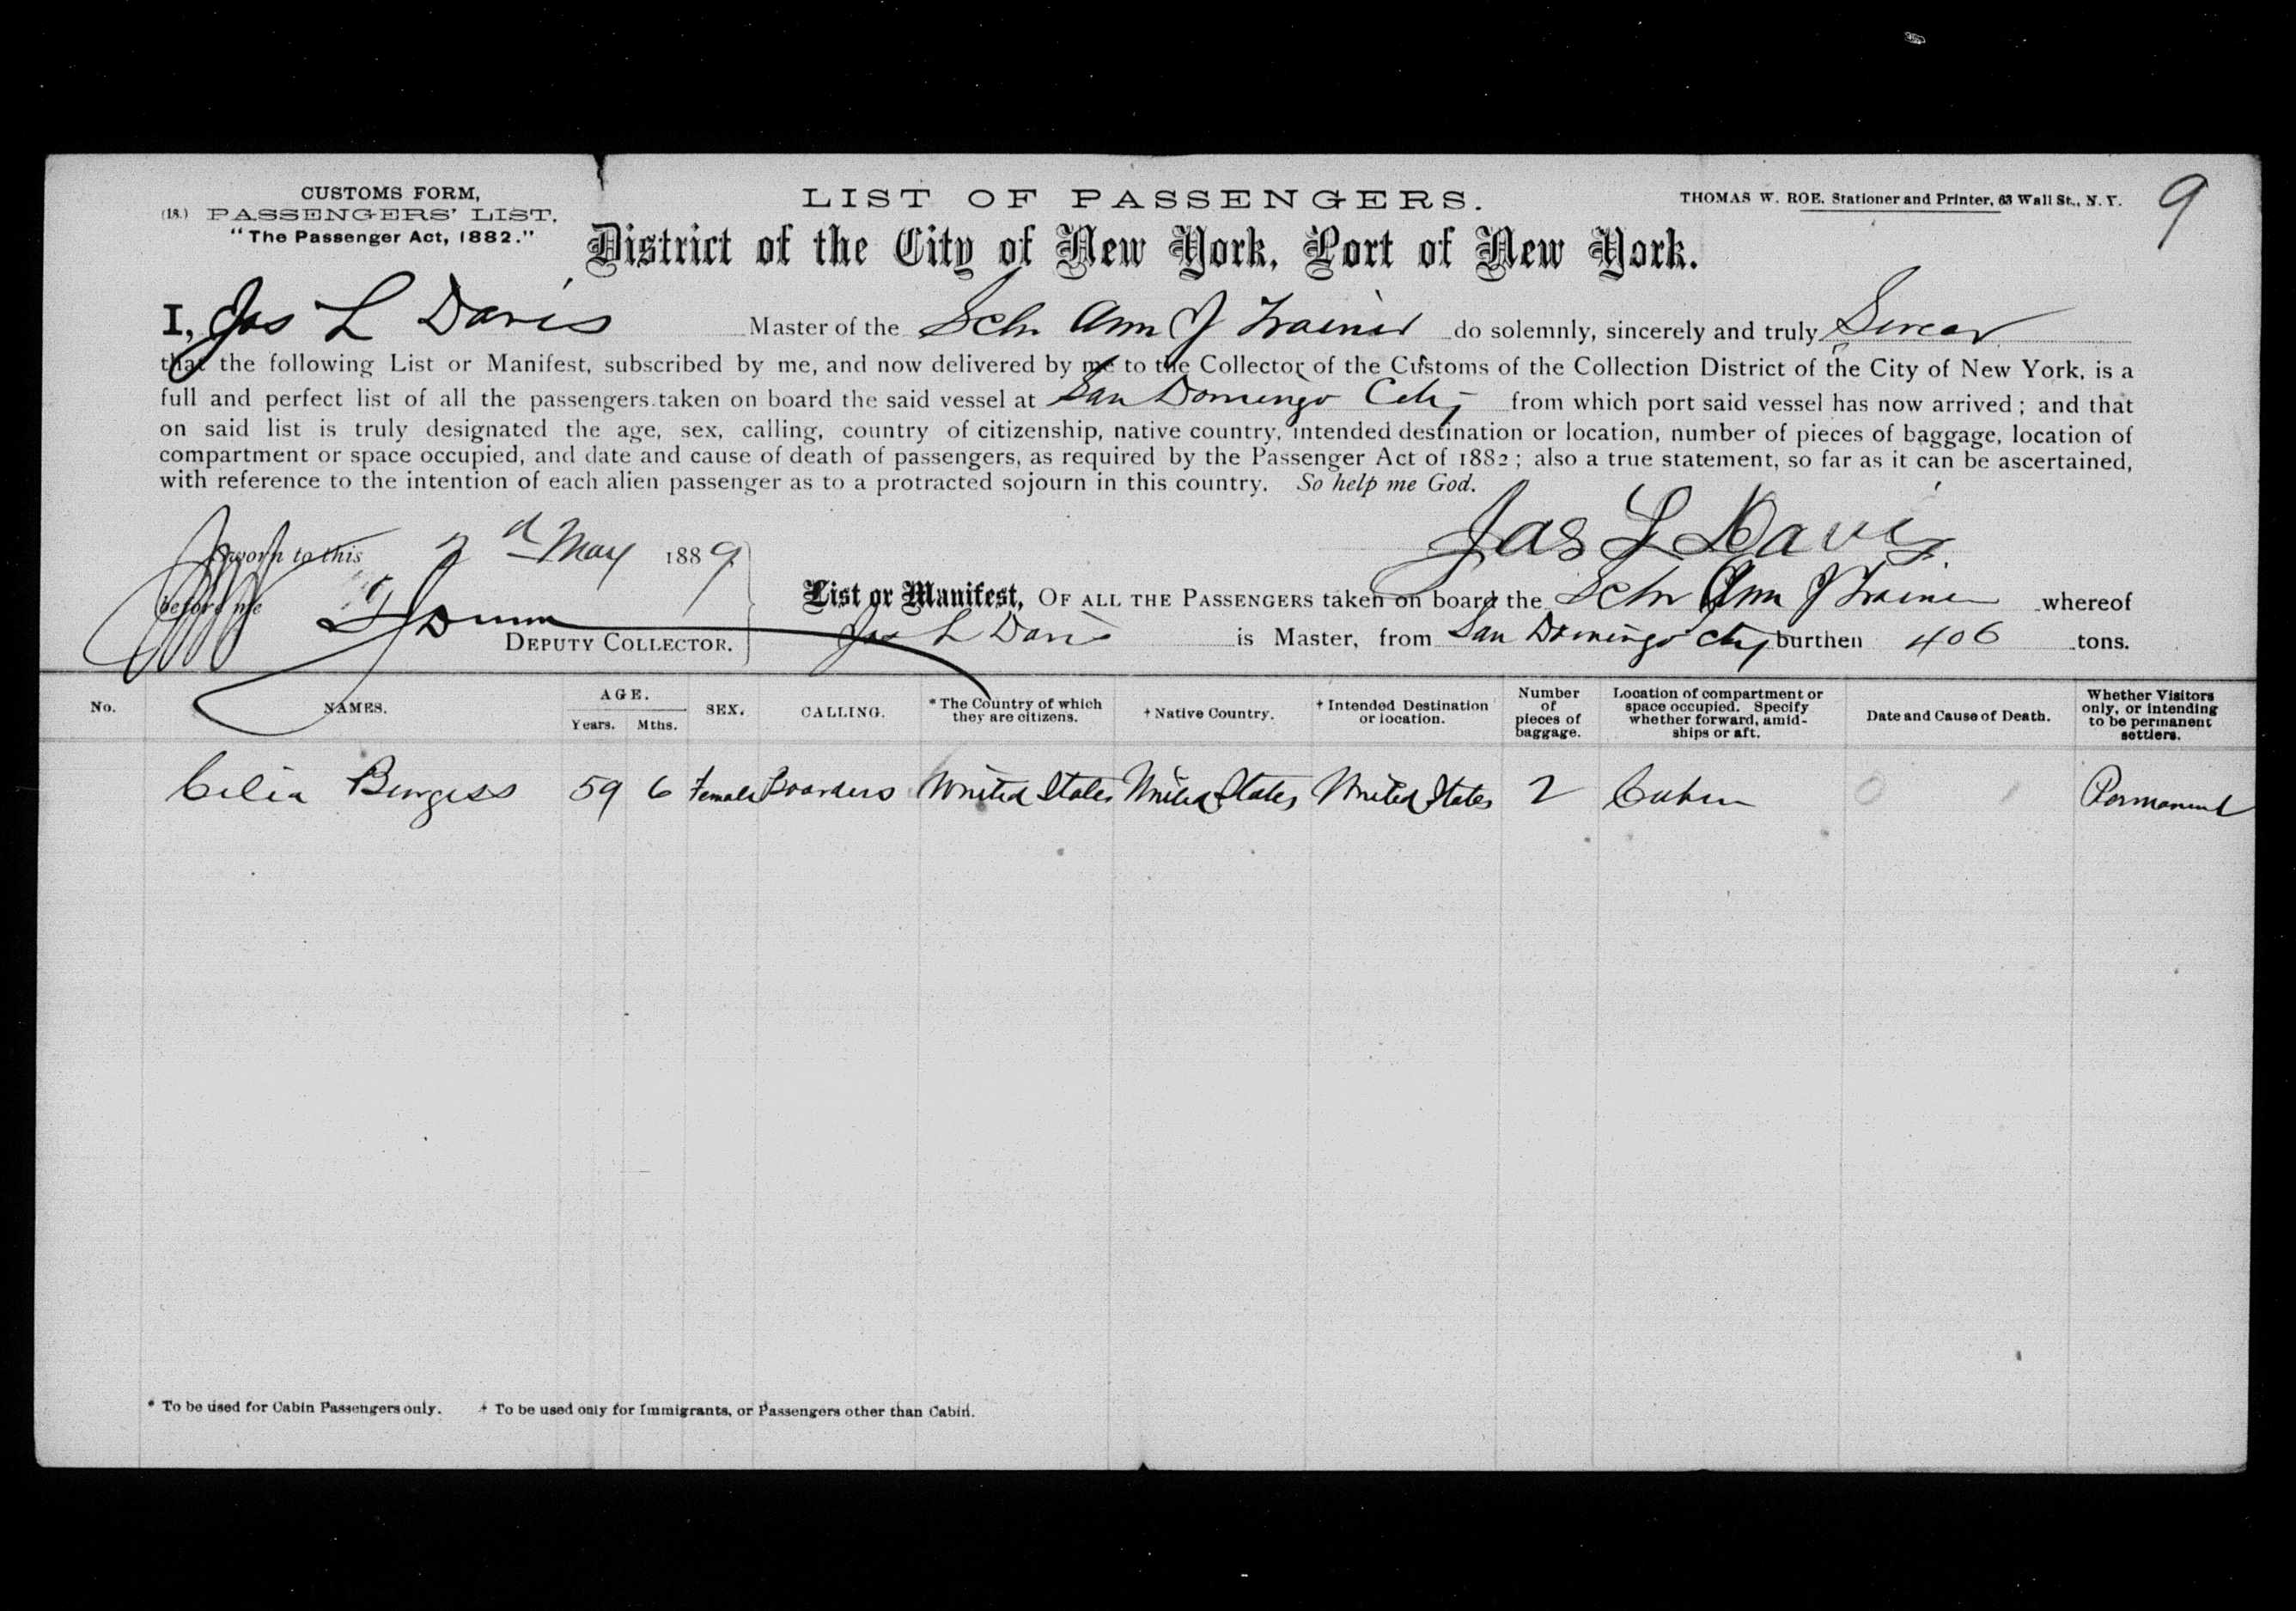 CUSTOMS FORM,
(18.) PASSENGERS' LIST,
"The Passenger Act, 1882."
LIST OF PASSENGERS.
THOMAS W. ROE, Stationer and Printer, 63 Wall St., N. Y.
9
District of the City of New York, Port of New York.
I, Jas L Davis Master of the Schr Ann J Trainer do solemnly, sincerely and truly Swear
that the following List or Manifest, subscribed by me, and now delivered by me to the Collector of the Customs of the Collection District of the City of New York, is a
full and perfect list of all the passengers taken on board the said vessel at San Domingo City from which port said vessel has now arrived; and that
on said list is truly designated the age, sex, calling, country of citizenship, native country, intended destination or location, number of pieces of baggage, location of
compartment or space occupied, and date and cause of death of passengers, as required by the Passenger Act of 1882; also a true statement, so far as it can be ascertained,
with reference to the intention of each alien passenger as to a protracted sojourn in this country. So help me God.
Jas L Davis
Sworn to this 2d May 1889
before me
DEPUTY COLLECTOR.
List or Manifest, OF ALL THE PASSENGERS taken on board the Schr Ann J Trainer whereof
Jas L Davis is Master, from San Domingo City burthen 406 tons.
No. NAMES. AGE. Years. Mths. SEX. CALLING. * The Country of which they are citizens. † Native Country. † Intended Destination or location. Number of pieces of baggage. Location of compartment or space occupied. Specify whether forward, amidships or aft. Date and Cause of Death. Whether Visitors only, or intending to be permanent settlers.
Celia Burgess 59 6 Female Boarders United States United States United States 2 Cabin 0 Permanent
* To be used for Cabin Passengers only. † To be used only for Immigrants, or Passengers other than Cabin.